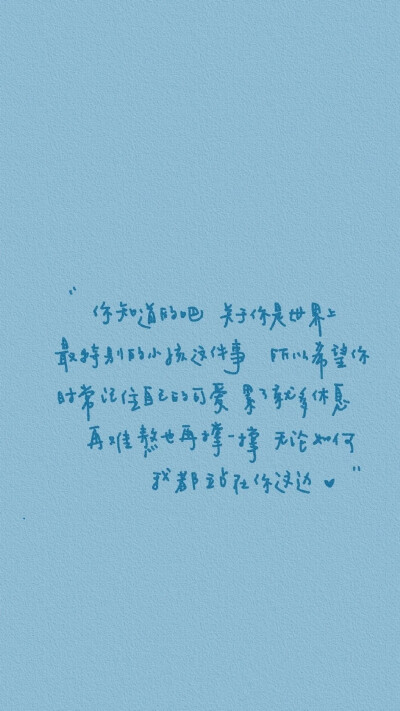 “ 你知道的吧 关于你是世界上
最特别的小孩这件事 所以希望你
时常记住自己的可爱 累了就多休息
再难熬也再撑一撑 无论如何
我都站在你这边 ♥ ”